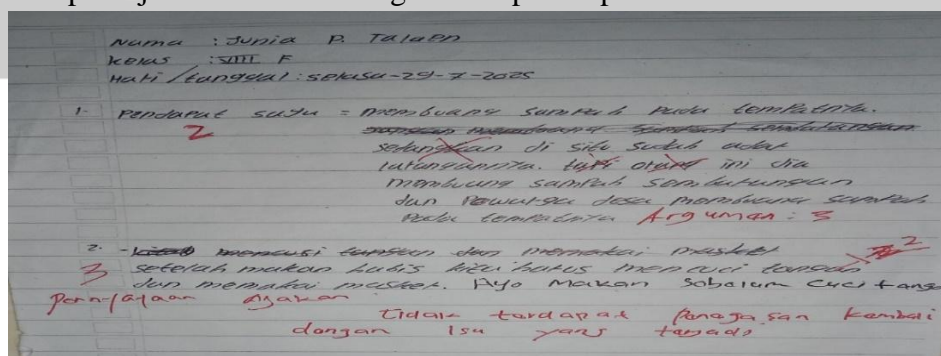 Nama : Junia P. Talaen
Kelas : VIII F
Hari /tanggal : selasa-29-7-2025
1. Pendapat saya = membuang sampah pada tempatnya.
2
sedangkan di situ sudah ada
larangannya. tapi orang ini dia
membuang sampah sembarangan
dan desa membuang sampah
pada tempatnya Argumen : 3
2. - mencusi tangan dan memakai masker 2
3 setelah makan habis kita harus mencuci tangan
dan memakai masker. Ayo Makan Sobelum Cuci tanga
Pernyataan Ajakan
Tidak terdapat Penegasan Kembali
dengan Isu yang terjadi